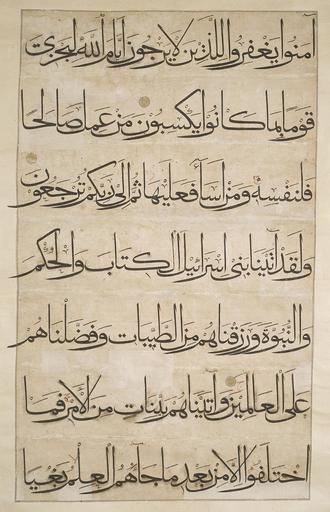 آمنوا يغفروا للذين لا يرجون أيام الله ليجزي
قوما بما كانوا يكسبون من عمل صالحا
فلنفسه ومن اساء فعليها ثم إلى ربكم ترجعون
ولقد آتينا بني اسرائيل الكتاب والحكم
والنبوة ورزقناهم من الطيبات وفضلناهم
على العالمين وآتيناهم بينات من الأمر فما
اختلفوا إلا من بعد ما جاءهم العلم بغيا